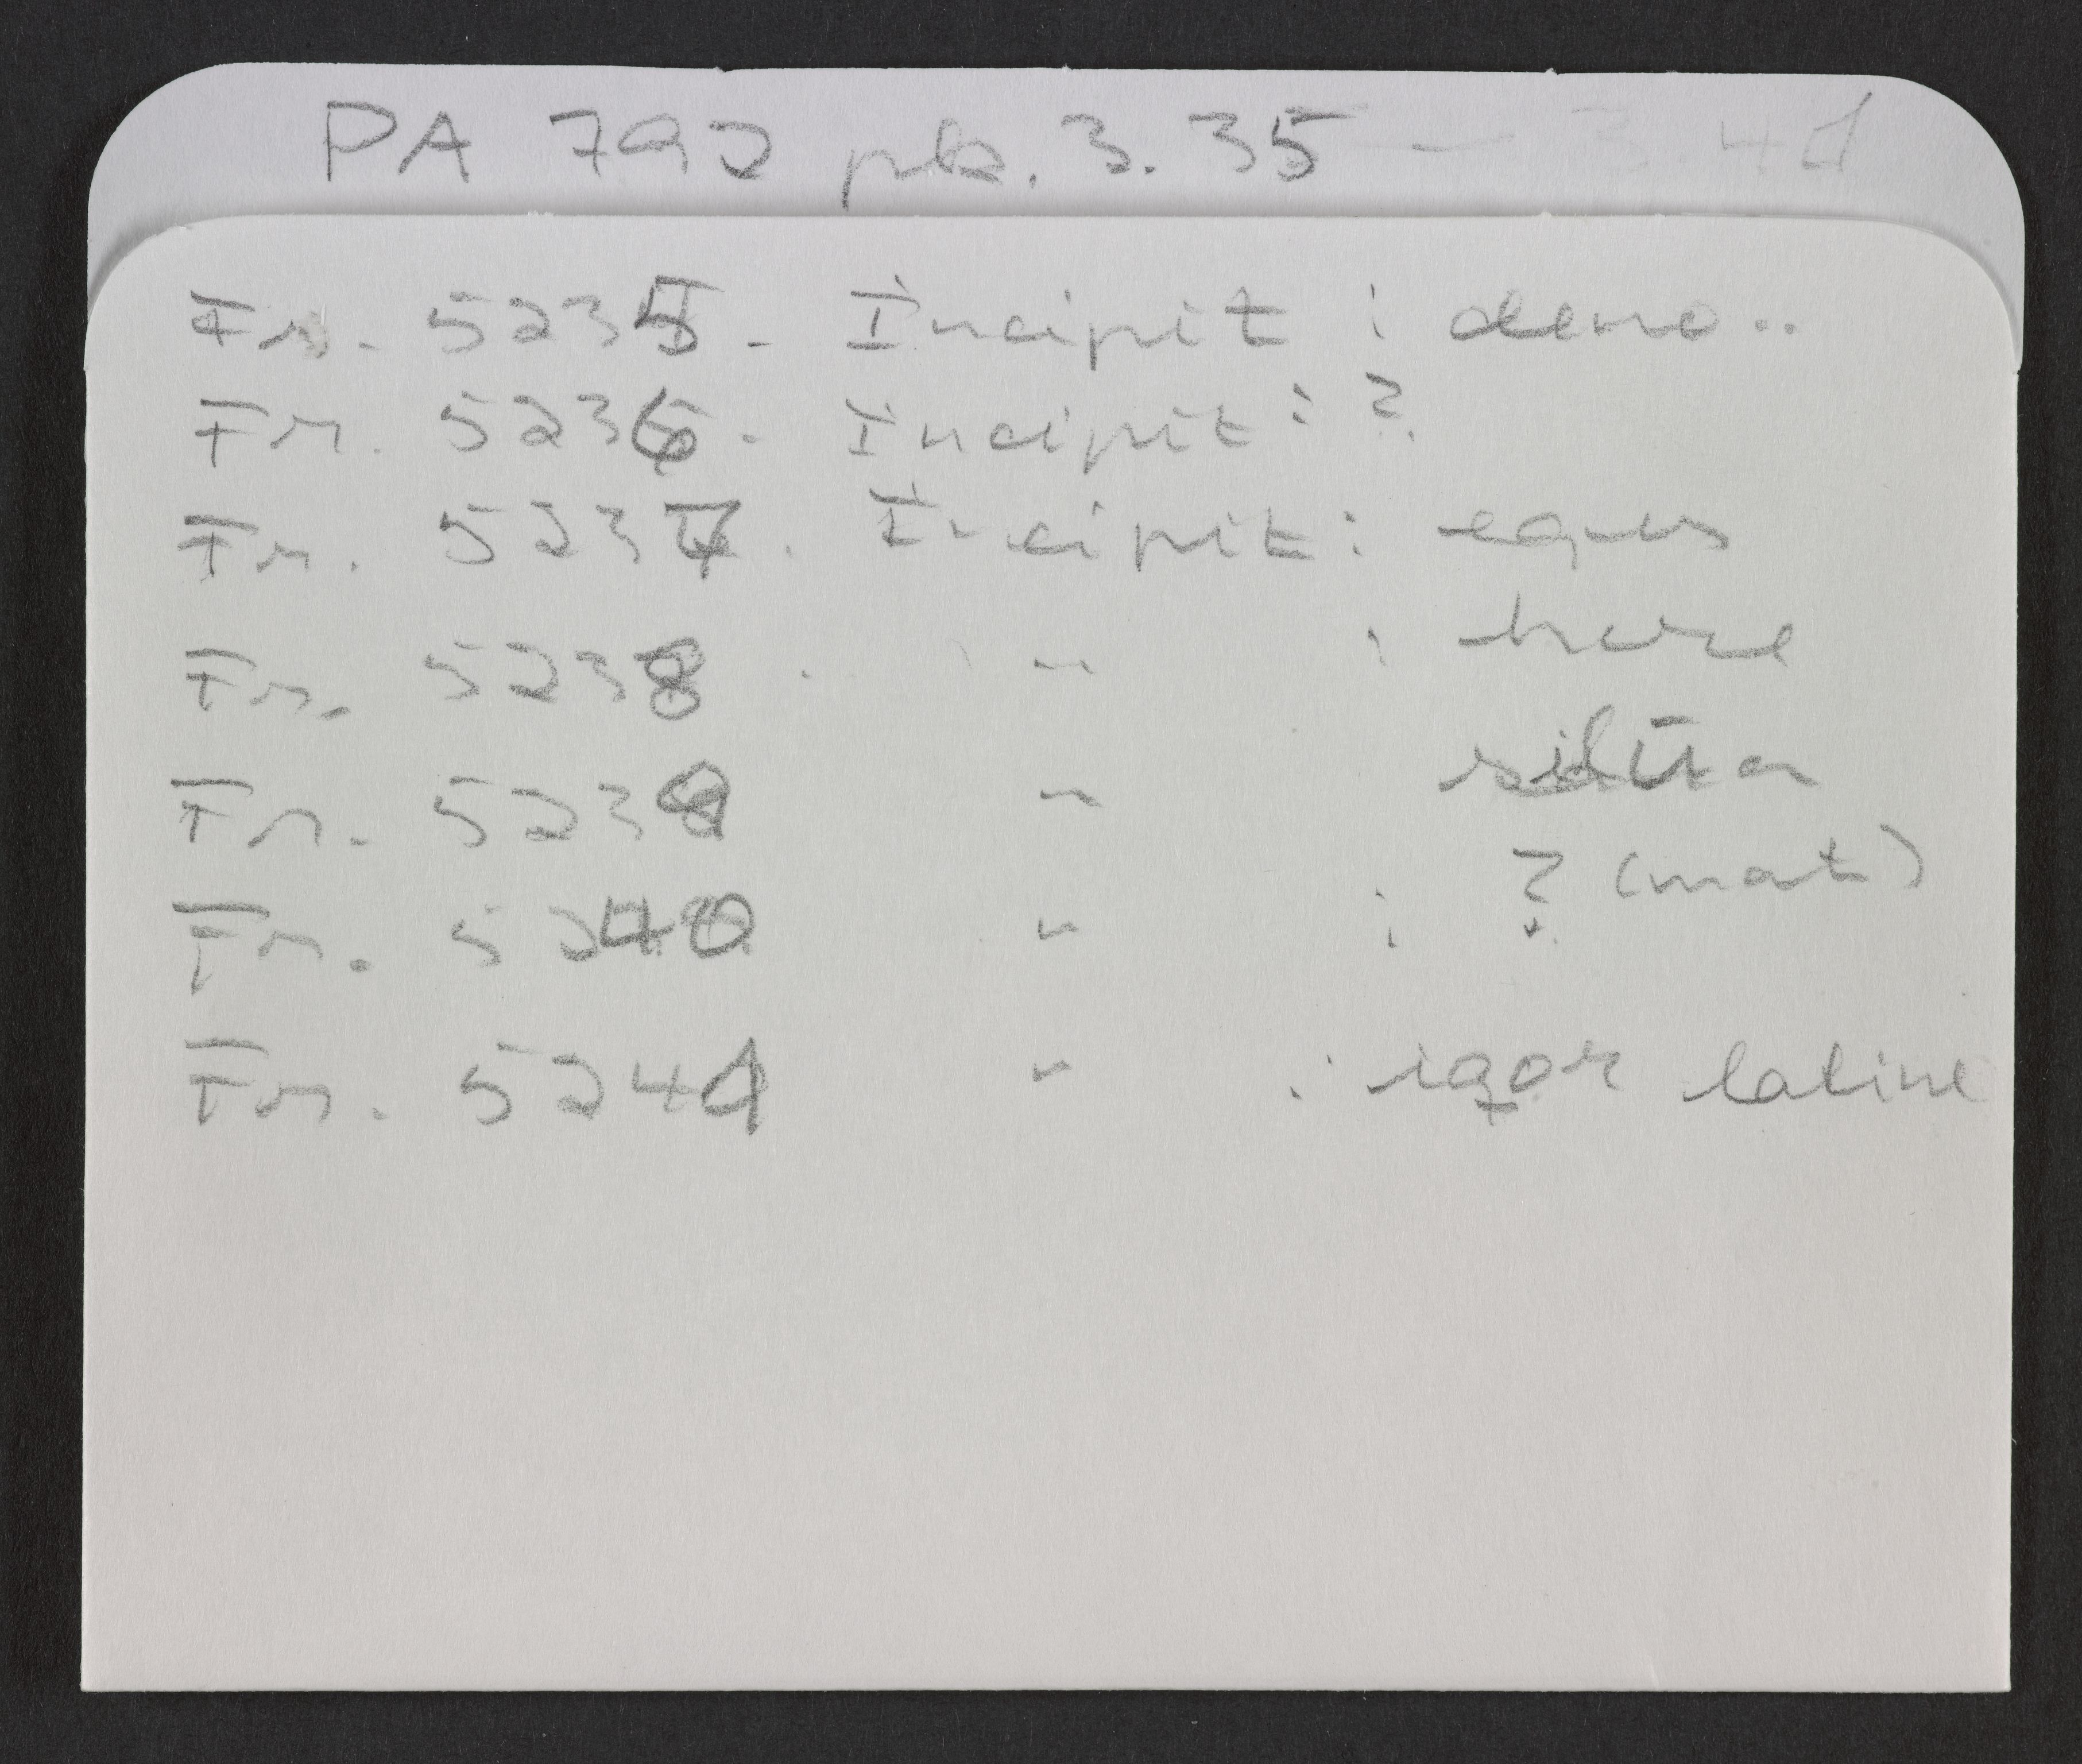 PA 792 pk. 3. 35 — 3. 41
Fr. 5235. Incipit: deno..
Fr. 5236. Incipit: ?
Fr. 5237. Incipit: equs
Fr. 5238. " :
Fr. 5239 "
Fr. 5240 " : ? (mat)
Fr. 5241 " : iqor latine